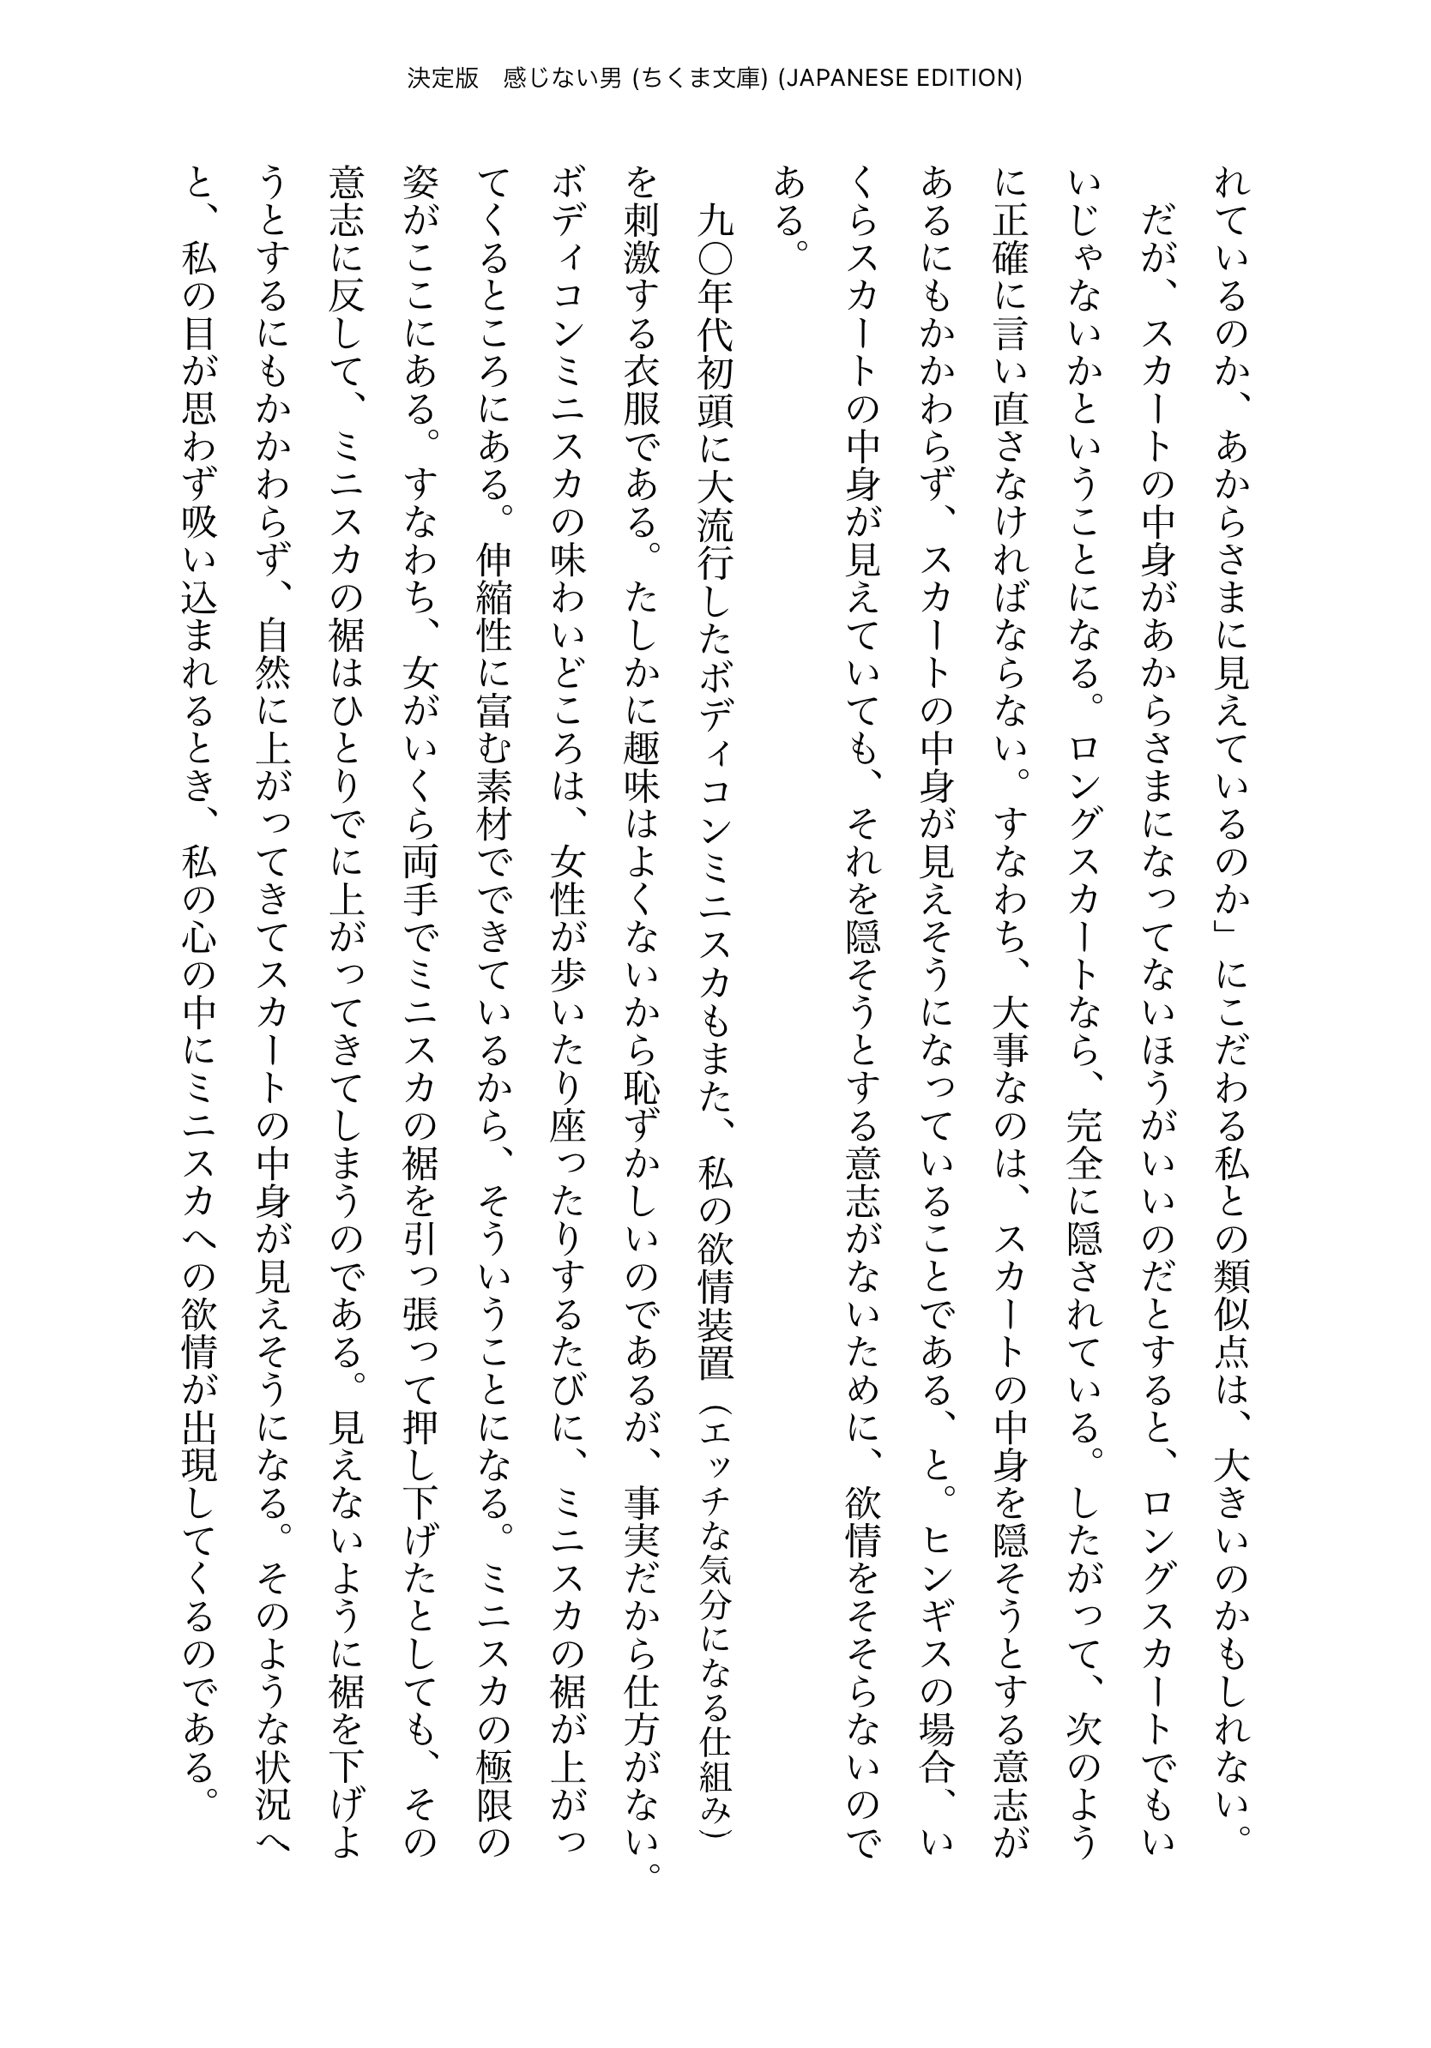 決定版　感じない男 (ちくま文庫) (JAPANESE EDITION)
れているのか、あからさまに見えているのか」にこだわる私との類似点は、大きいのかもしれない。
　だが、スカートの中身があからさまになってないほうがいいのだとすると、ロングスカートでもい
いじゃないかということになる。ロングスカートなら、完全に隠されている。したがって、次のよう
に正確に言い直さなければならない。すなわち、大事なのは、スカートの中身を隠そうとする意志が
あるにもかかわらず、スカートの中身が見えそうになっていることである、と。ヒンギスの場合、い
くらスカートの中身が見えていても、それを隠そうとする意志がないために、欲情をそそらないので
ある。
　九〇年代初頭に大流行したボディコンミニスカもまた、私の欲情装置（エッチな気分になる仕組み）
を刺激する衣服である。たしかに趣味はよくないから恥ずかしいのであるが、事実だから仕方がない。
ボディコンミニスカの味わいどころは、女性が歩いたり座ったりするたびに、ミニスカの裾が上がっ
てくるところにある。伸縮性に富む素材でできているから、そういうことになる。ミニスカの極限の
姿がここにある。すなわち、女がいくら両手でミニスカの裾を引っ張って押し下げたとしても、その
意志に反して、ミニスカの裾はひとりでに上がってきてしまうのである。見えないように裾を下げよ
うとするにもかかわらず、自然に上がってきてスカートの中身が見えそうになる。そのような状況へ
と、私の目が思わず吸い込まれるとき、私の心の中にミニスカへの欲情が出現してくるのである。